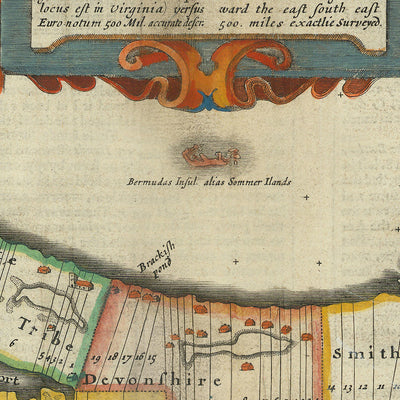 locus est in Virginia) versus
Euronotum 500 Mil. accurate descr.
ward the east south east
500. miles exactlie Surveyed.
Bermudas Insul. alias Sommer Ilands
Brackish
pond
Tribe
6 5 4 3 2
19 18 17 16 15
Devonshire
Smith
14 13 12 11 10
ort